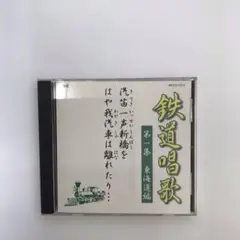 鉄道唱歌
第一集 東海道編
汽笛一声新橋を
はや我汽車は離れたり…